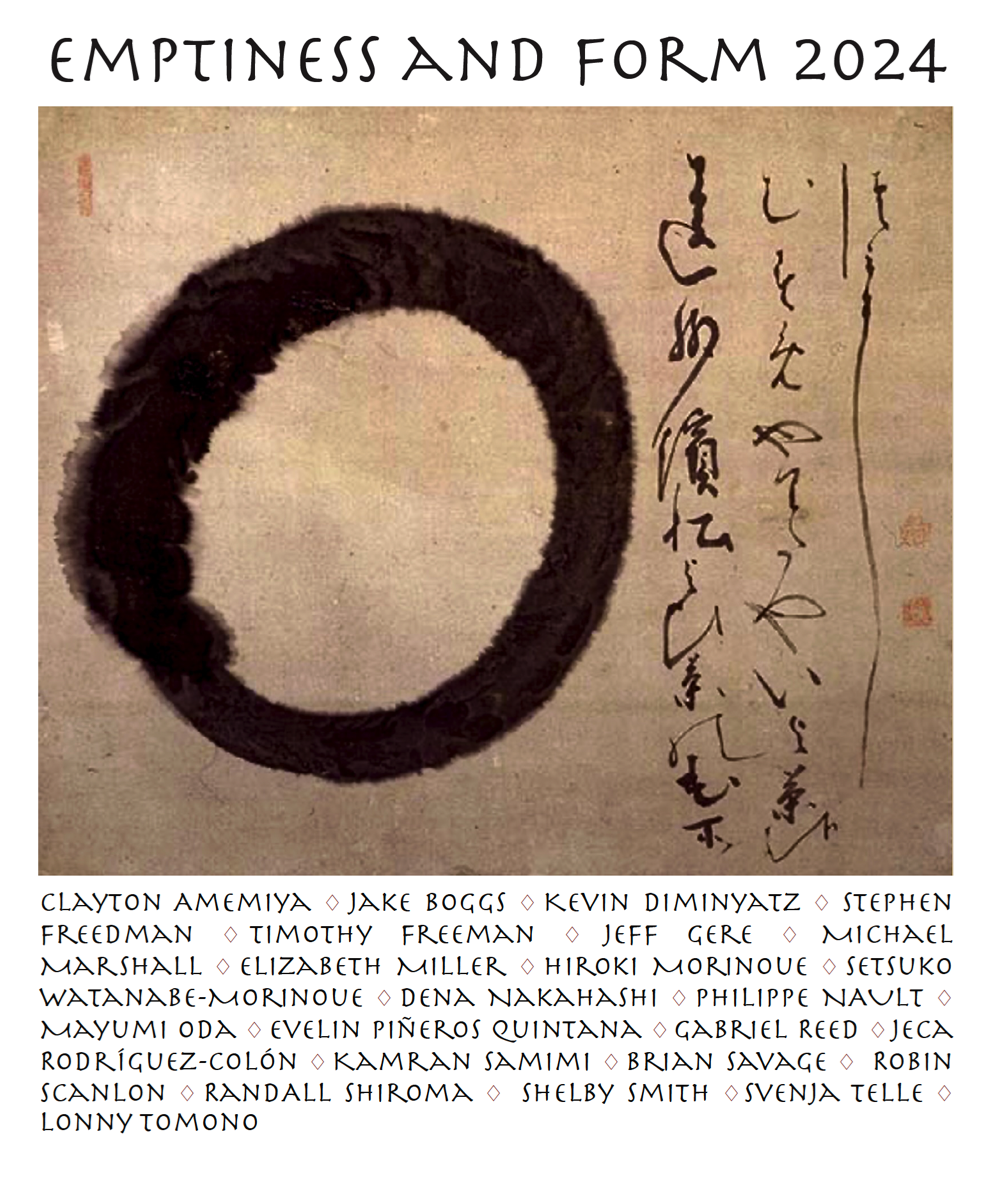 EMPTINESS AND FORM 2024
CLAYTON AMEMIYA ♢ JAKE BOGGS ♢ KEVIN DIMINYATZ ♢ STEPHEN
FREEDMAN ♢ TIMOTHY FREEMAN ♢ JEFF GERE ♢ MICHAEL
MARSHALL ♢ ELIZABETH MILLER ♢ HIROKI MORINOUE ♢ SETSUKO
WATANABE-MORINOUE ♢ DENA NAKAHASHI ♢ PHILIPPE NAULT ♢
MAYUMI ODA ♢ EVELIN PIÑEROS QUINTANA ♢ GABRIEL REED ♢ JECA
RODRÍGUEZ-COLÓN ♢ KAMRAN SAMIMI ♢ BRIAN SAVAGE ♢ ROBIN
SCANLON ♢ RANDALL SHIROMA ♢ SHELBY SMITH ♢ SVENJA TELLE ♢
LONNY TOMONO